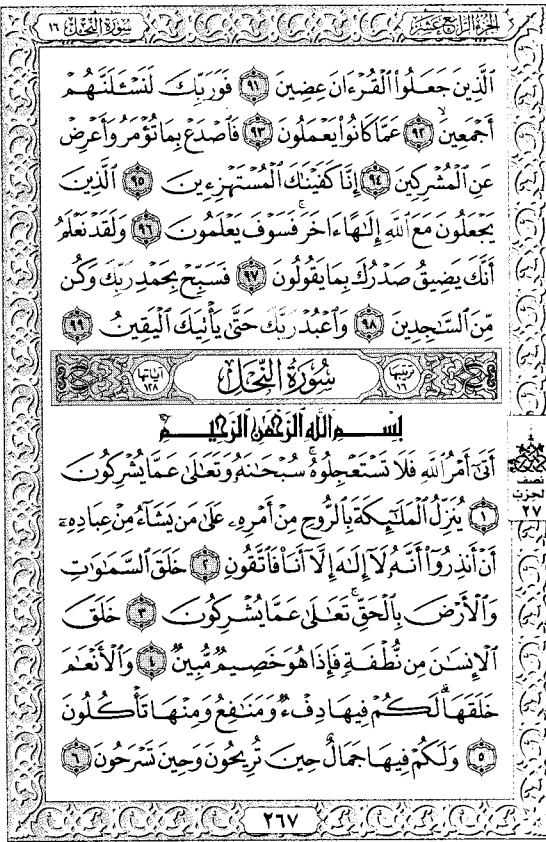 الجزء الرابع عشر
سورة النحل ١٦
ٱلَّذِينَ جَعَلُوا۟ ٱلْقُرْءَانَ عِضِينَ ٩١ فَوَرَبِّكَ لَنَسْـَٔلَنَّهُمْ
أَجْمَعِينَ ٩٢ عَمَّا كَانُوا۟ يَعْمَلُونَ ٩٣ فَٱصْدَعْ بِمَا تُؤْمَرُ وَأَعْرِضْ
عَنِ ٱلْمُشْرِكِينَ ٩٤ إِنَّا كَفَيْنَـٰكَ ٱلْمُسْتَهْزِءِينَ ٩٥ ٱلَّذِينَ
يَجْعَلُونَ مَعَ ٱللَّهِ إِلَـٰهًا ءَاخَرَ ۚ فَسَوْفَ يَعْلَمُونَ ٩٦ وَلَقَدْ نَعْلَمُ
أَنَّكَ يَضِيقُ صَدْرُكَ بِمَا يَقُولُونَ ٩٧ فَسَبِّحْ بِحَمْدِ رَبِّكَ وَكُن
مِّنَ ٱلسَّـٰجِدِينَ ٩٨ وَٱعْبُدْ رَبَّكَ حَتَّىٰ يَأْتِيَكَ ٱلْيَقِينُ ٩٩
ترتيبها ١٦ سُورَةُ النَّحْلِ آياتها ١٢٨
بِسْمِ ٱللَّهِ ٱلرَّحْمَـٰنِ ٱلرَّحِيمِ
أَتَىٰٓ أَمْرُ ٱللَّهِ فَلَا تَسْتَعْجِلُوهُ ۚ سُبْحَـٰنَهُۥ وَتَعَـٰلَىٰ عَمَّا يُشْرِكُونَ
١ يُنَزِّلُ ٱلْمَلَـٰٓئِكَةَ بِٱلرُّوحِ مِنْ أَمْرِهِۦ عَلَىٰ مَن يَشَآءُ مِنْ عِبَادِهِۦٓ
أَنْ أَنذِرُوٓا۟ أَنَّهُۥ لَآ إِلَـٰهَ إِلَّآ أَنَا۠ فَٱتَّقُونِ ٢ خَلَقَ ٱلسَّمَـٰوَٰتِ
وَٱلْأَرْضَ بِٱلْحَقِّ ۚ تَعَـٰلَىٰ عَمَّا يُشْرِكُونَ ٣ خَلَقَ
ٱلْإِنسَـٰنَ مِن نُّطْفَةٍ فَإِذَا هُوَ خَصِيمٌ مُّبِينٌ ٤ وَٱلْأَنْعَـٰمَ
خَلَقَهَا ۗ لَكُمْ فِيهَا دِفْءٌ وَمَنَـٰفِعُ وَمِنْهَا تَأْكُلُونَ
٥ وَلَكُمْ فِيهَا جَمَالٌ حِينَ تُرِيحُونَ وَحِينَ تَسْرَحُونَ ٦
نصف
الحزب
٢٧
٢٦٧